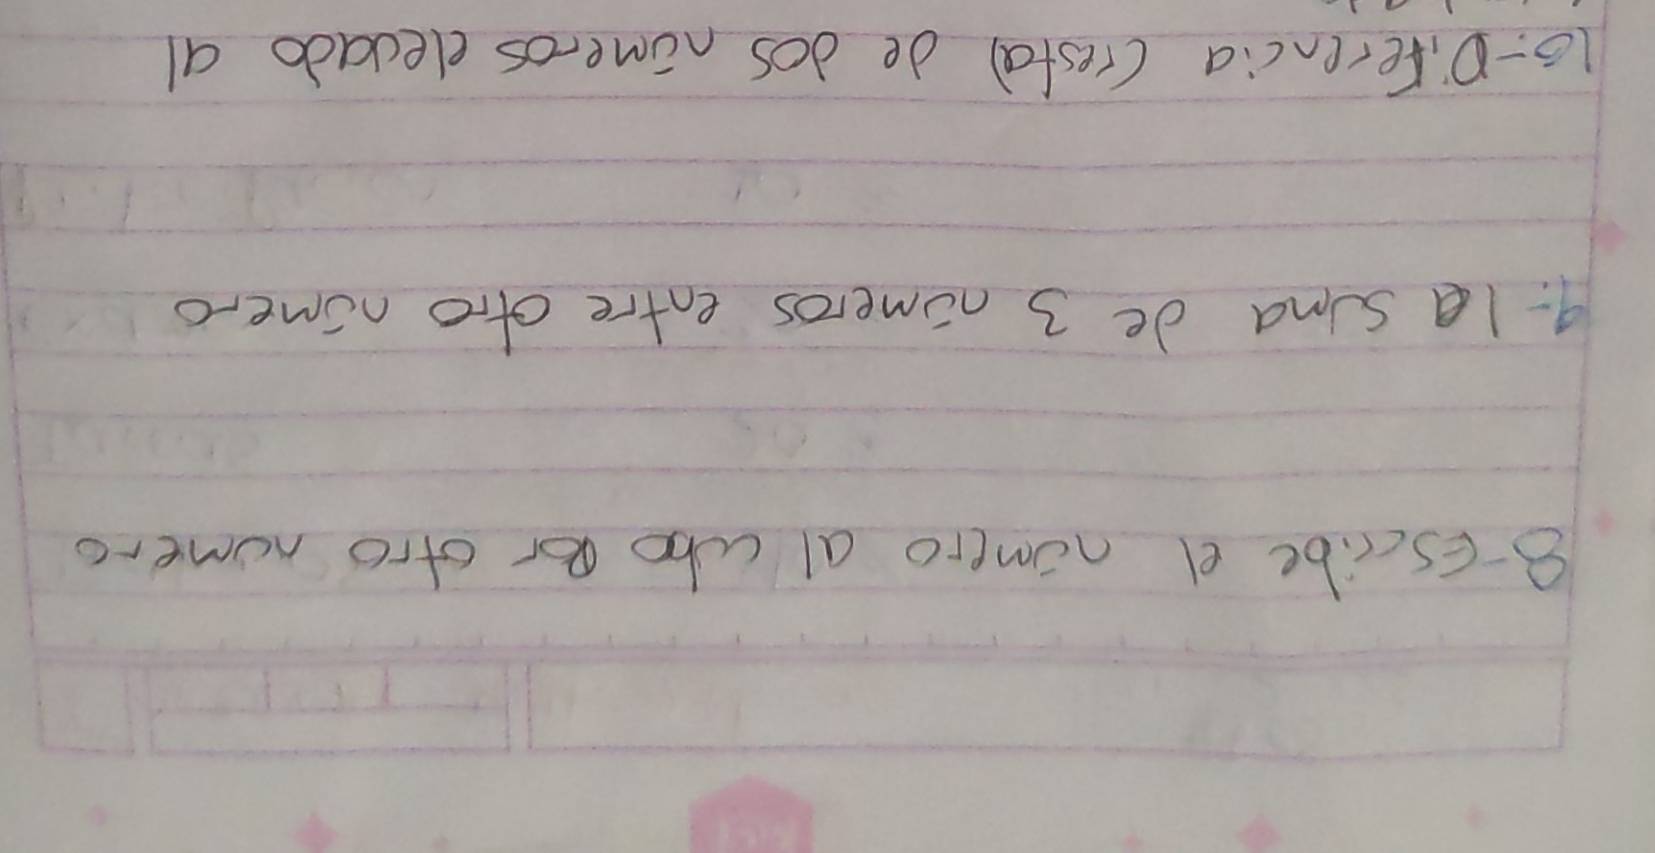 8-Escribe el número al cubo por otro número
9.- la suma de 3 números entre otro número
10.- Diferencia (resta) de dos números elevado al